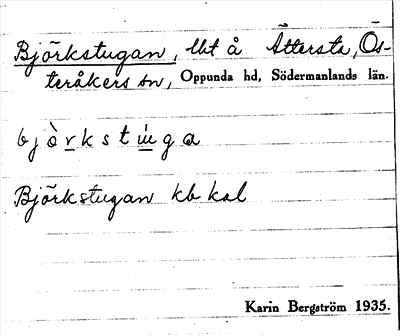 Björkstugan, lht å Åttersta, Ös-
teråkers sn, Oppunda hd, Södermanlands län.
bjò̀rkstúga
Björkstugan kb kal
Karin Bergström 1935.